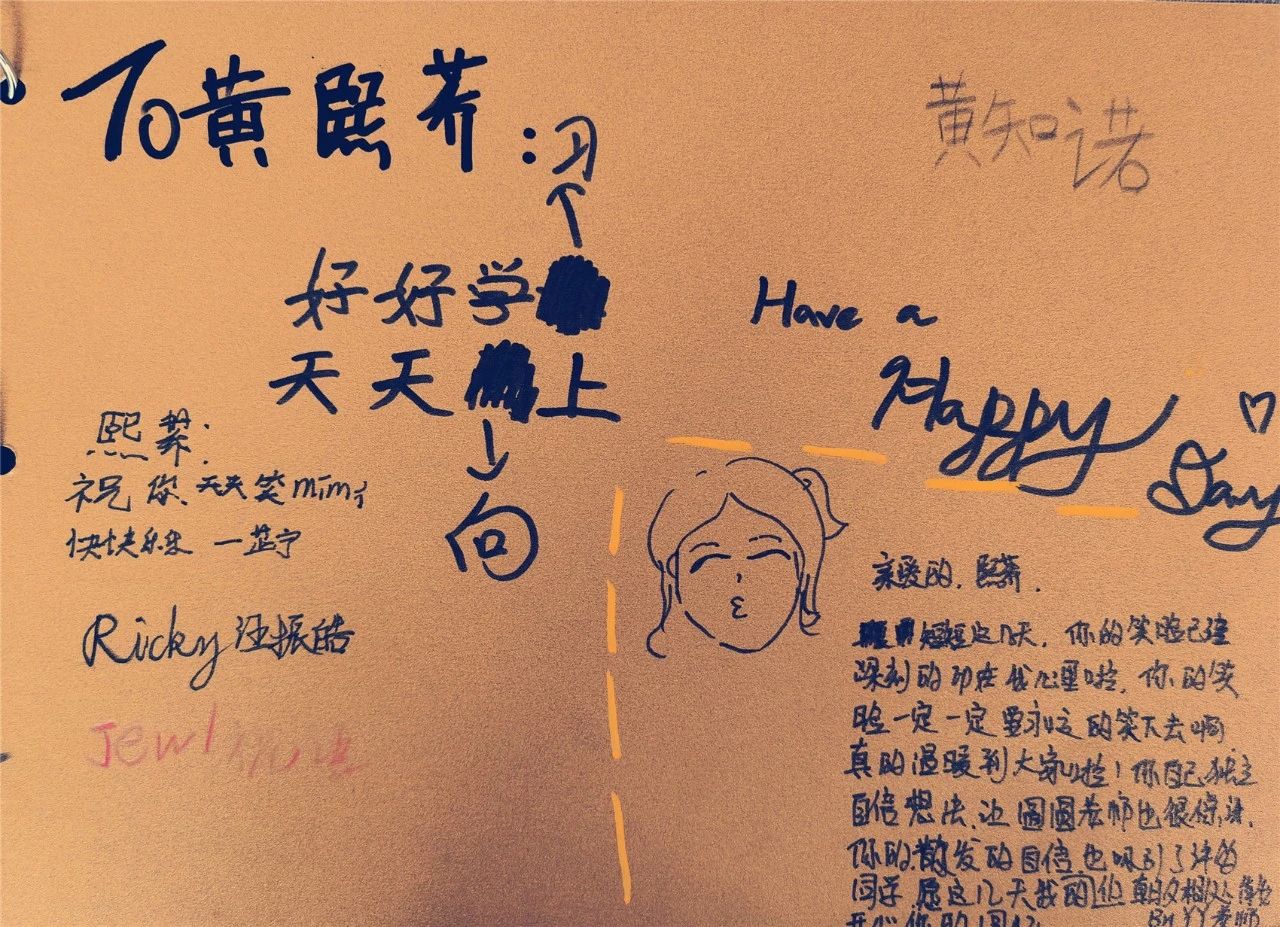 To黄熙荞:习
好好学
天天上
向
熙荞:
祝你天天笑mimi
快快乐乐 一芷宁
Ricky 汪振皓
Jewl
黄知诺
Have a
Happy
Day
亲爱的.熙荞.
短短这几天,你的笑脸已经
深刻的印在我心里啦,你的笑
脸一定一定要永远的笑下去啊
真的温暖到大家啦!你自己独立
自信想法,让圆圆老师也很佩服.
你的散发的自信也吸引了许多
同学.愿这几天我们的朝夕相处
开心你的回忆
BY YY老师